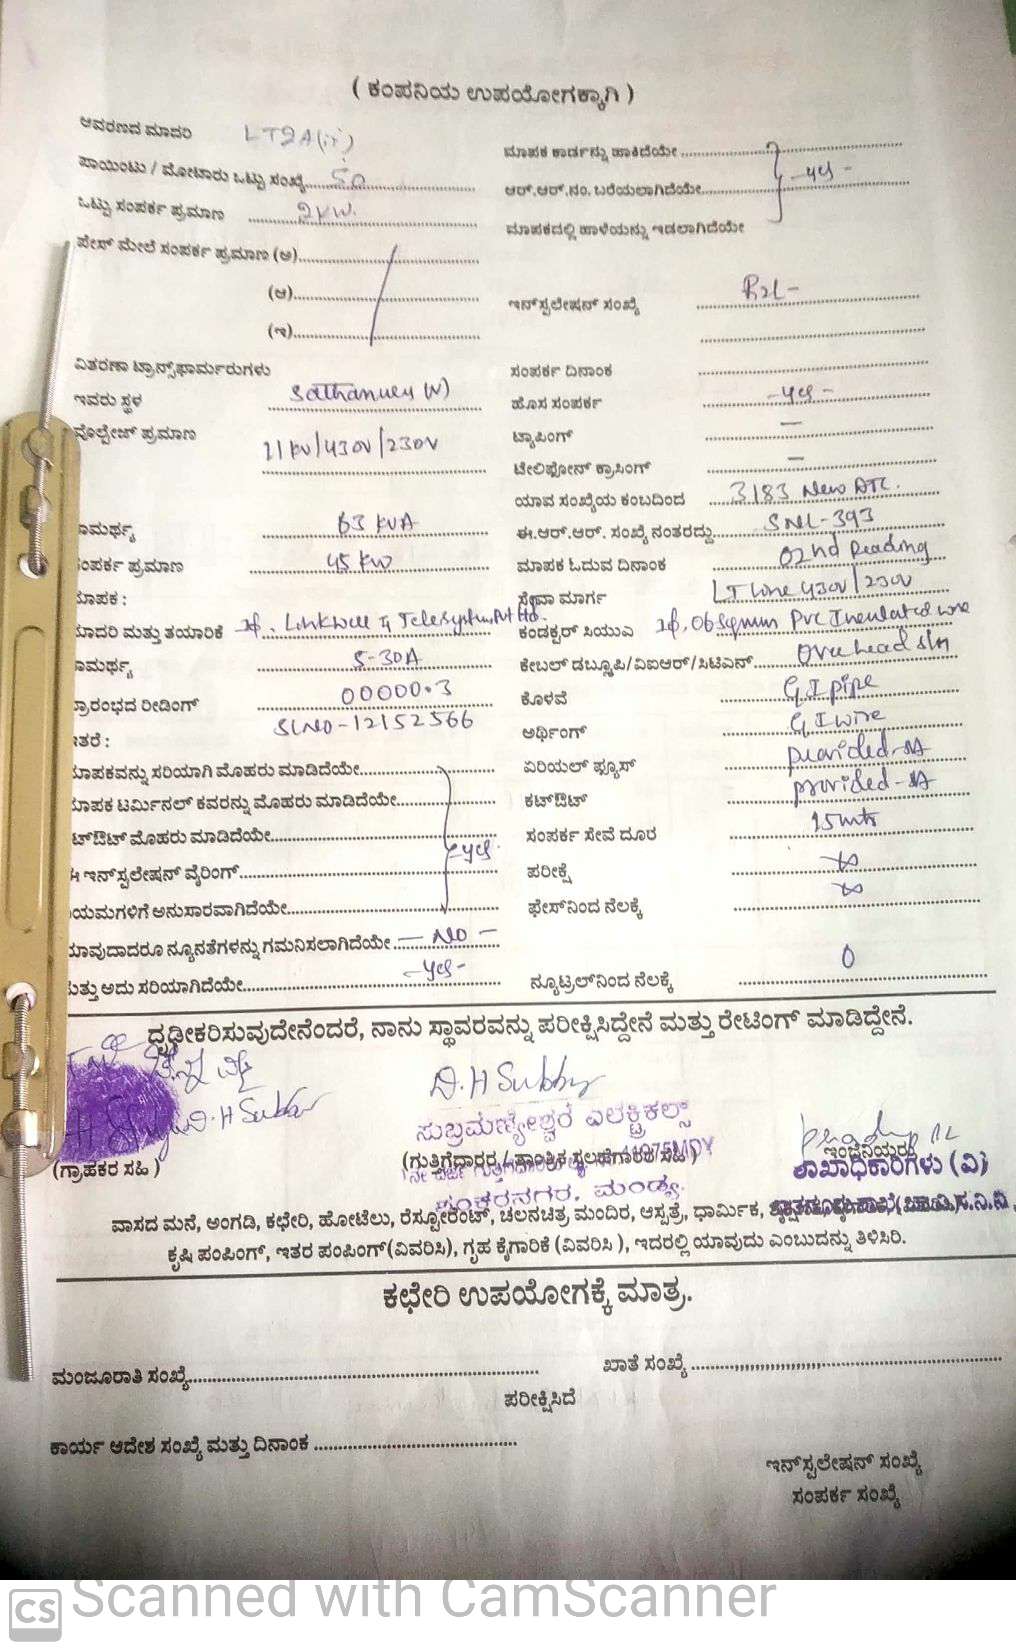 ( ಕಂಪನಿಯ ಉಪಯೋಗಕ್ಕಾಗಿ )
ಆವರಣದ ಮಾದರಿ LT2A(ii)
ಪಾಯಿಂಟು / ಮೋಟಾರು ಒಟ್ಟು ಸಂಖ್ಯೆ......
ಒಟ್ಟು ಸಂಪರ್ಕ ಪ್ರಮಾಣ 2KW.
ಫೇಸ್ ಮೇಲೆ ಸಂಪರ್ಕ ಪ್ರಮಾಣ (ಅ)......
(ಆ)......
(ಇ)......
ಮಾಪಕ ಕಾರ್ಡನ್ನು ಹಾಕಿದೆಯೇ......
ಆರ್.ಆರ್.ನಂ. ಬರೆಯಲಾಗಿದೆಯೇ...... -yes-
ಮಾಪಕದಲ್ಲಿ ಹಾಳೆಯನ್ನು ಇಡಲಾಗಿದೆಯೇ
ಇನ್‌ಸ್ಟಲೇಷನ್ ಸಂಖ್ಯೆ
ವಿತರಣಾ ಟ್ರಾನ್ಸ್‌ಫಾರ್ಮರುಗಳು
ಇವರು ಸ್ಥಳ
ವೊಲ್ಟೇಜ್ ಪ್ರಮಾಣ 11KV/430V/230V
ಸಂಪರ್ಕ ದಿನಾಂಕ
ಹೊಸ ಸಂಪರ್ಕ -yes-
ಟ್ಯಾಪಿಂಗ್ —
ಟೇಲಿಫೋನ್ ಕ್ರಾಸಿಂಗ್ —
ಯಾವ ಸಂಖ್ಯೆಯ ಕಂಬದಿಂದ 3183 New DTC.
ಾಮರ್ಥ್ಯ 63 KVA
ಈ.ಆರ್.ಆರ್. ಸಂಖ್ಯೆ ನಂತರದ್ದು SNL-393
ಂಪರ್ಕ ಪ್ರಮಾಣ 45 KW
ಮಾಪಕ ಓದುವ ದಿನಾಂಕ 02nd Reading
ಾಪಕ :
ಸೇವಾ ಮಾರ್ಗ LT Line 430V/230V
ಾದರಿ ಮತ್ತು ತಯಾರಿಕೆ Linkwell Telesystems Pvt Ltd.
ಕಂಡಕ್ಟರ್ ಸಿಯುಎ 06 Sqmm PVC Insulated wire
ಾಮರ್ಥ್ಯ 5-30A
ಕೇಬಲ್ ಡಬ್ಲ್ಯೂಪಿ/ವಿಐಆರ್/ಸಿಟಿಎನ್...... Overhead
್ರಾರಂಭದ ರೀಡಿಂಗ್ 00000.3
ಕೊಳವೆ G I pipe
SLNO-12152566
ತರೆ :
ಅರ್ಥಿಂಗ್ G I wire
ಾಪಕವನ್ನು ಸರಿಯಾಗಿ ಮೊಹರು ಮಾಡಿದೆಯೇ......
ಏರಿಯಲ್ ಫ್ಯೂಸ್ provided-
ಾಪಕ ಟರ್ಮಿನಲ್ ಕವರನ್ನು ಮೊಹರು ಮಾಡಿದೆಯೇ......
ಕಟ್‌ಔಟ್ provided-
ಟ್‌ಔಟ್ ಮೊಹರು ಮಾಡಿದೆಯೇ...... yes.
ಸಂಪರ್ಕ ಸೇವೆ ದೂರ 15mts
ಈ ಇನ್‌ಸ್ಟಲೇಷನ್ ವೈರಿಂಗ್......
ಪರೀಕ್ಷೆ ∞
ಯಮಗಳಿಗೆ ಅನುಸಾರವಾಗಿದೆಯೇ......
ಫೇಸ್‌ನಿಂದ ನೆಲಕ್ಕೆ ∞
ಾವುದಾದರೂ ನ್ಯೂನತೆಗಳನ್ನು ಗಮನಿಸಲಾಗಿದೆಯೇ — NO —
ುತ್ತು ಅದು ಸರಿಯಾಗಿದೆಯೇ...... -yes-
ನ್ಯೂಟ್ರಲ್‌ನಿಂದ ನೆಲಕ್ಕೆ 0
ದೃಢೀಕರಿಸುವುದೇನೆಂದರೆ, ನಾನು ಸ್ಥಾವರವನ್ನು ಪರೀಕ್ಷಿಸಿದ್ದೇನೆ ಮತ್ತು ರೇಟಿಂಗ್ ಮಾಡಿದ್ದೇನೆ.
ಸುಬ್ರಮಣ್ಯೇಶ್ವರ ಎಲಕ್ಟ್ರಿಕಲ್ಸ್
(ಗ್ರಾಹಕರ ಸಹಿ )
(ಗುತ್ತಿಗೆದಾರರ / ತಾಂತ್ರಿಕ ಸಲಹೆಗಾರರ ಸಹಿ )
ಇಂಜಿನಿಯರ
ಶಾಖಾಧಿಕಾರಿಗಳು (ವಿ)
ಶಂಕರನಗರ, ಮಂಡ್ಯ.
ವಾಸದ ಮನೆ, ಅಂಗಡಿ, ಕಛೇರಿ, ಹೋಟೆಲು, ರೆಸ್ಟೋರೆಂಟ್, ಚಲನಚಿತ್ರ ಮಂದಿರ, ಆಸ್ಪತ್ರೆ, ಧಾರ್ಮಿಕ,
ಕೃಷಿ ಪಂಪಿಂಗ್, ಇತರ ಪಂಪಿಂಗ್(ವಿವರಿಸಿ), ಗೃಹ ಕೈಗಾರಿಕೆ (ವಿವರಿಸಿ ), ಇದರಲ್ಲಿ ಯಾವುದು ಎಂಬುದನ್ನು ತಿಳಿಸಿರಿ.
ಕಛೇರಿ ಉಪಯೋಗಕ್ಕೆ ಮಾತ್ರ.
ಮಂಜೂರಾತಿ ಸಂಖ್ಯೆ......
ಖಾತೆ ಸಂಖ್ಯೆ......
ಪರೀಕ್ಷಿಸಿದೆ
ಕಾರ್ಯ ಆದೇಶ ಸಂಖ್ಯೆ ಮತ್ತು ದಿನಾಂಕ......
ಇನ್‌ಸ್ಪಲೇಷನ್ ಸಂಖ್ಯೆ
ಸಂಪರ್ಕ ಸಂಖ್ಯೆ
CS Scanned with CamScanner